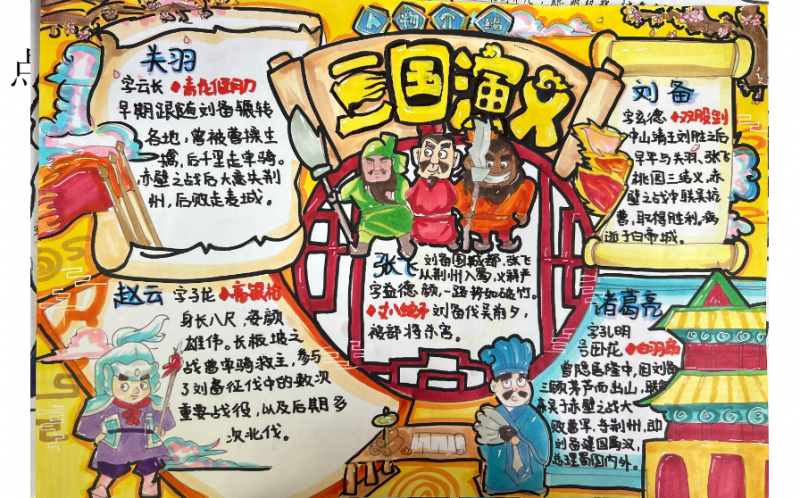 人物介绍
三国演义
关羽
字云长 青龙偃月刀
早期跟随刘备辗转
各地，曾被曹操生
擒，后千里走单骑。
赤壁之战后大意失荆
州，后败走麦城。
刘备
字玄德 双股剑
中山靖王刘胜之后
早年与关羽、张飞
桃园三结义，赤
壁之战中联吴抗
曹，取得胜利。病
逝于白帝城。
张飞
刘备围城都，张飞
从荆州入蜀，义释严
字益德 颜，一路势如破竹。
丈八蛇矛 刘备伐吴前夕，
被部将杀害。
赵云 字子龙 亮银枪
身长八尺，姿颜
雄伟。长板坡之
战曹单骑救主，参与
了刘备征伐中的数次
重要战役，以及后期多
次北伐。
诸葛亮
字孔明
号卧龙 白羽扇
曾隐居隆中，因刘备
三顾茅芦而出山，联
东吴于赤壁之战大
败曹军，夺荆州，助
刘备建国蜀汉，
总理蜀国内外。
点